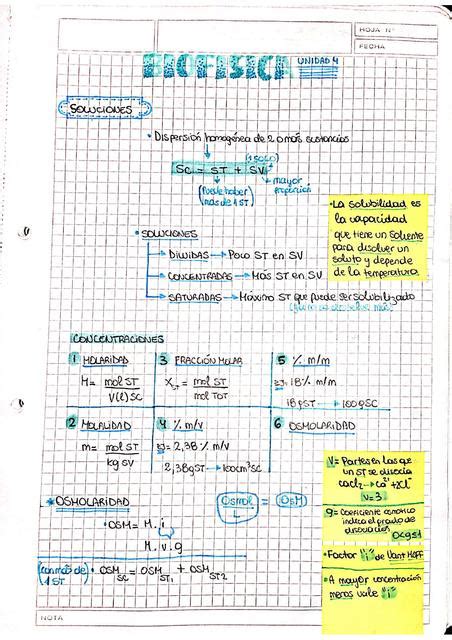 HOJA N°
FECHA
BIOFISICA UNIDAD 4
SOLUCIONES
• Dispersión homogénea de 2 o más sustancias
(1 SOLO)
SC = ST + SV
(Puede haber más de 1 ST)
mayor proporción
• La solubilidad es
la capacidad
que tiene un solvente
para disolver un
soluto y depende
de la temperatura.
• SOLUCIONES
DILUIDAS → Poco ST en SV
CONCENTRADAS → Más ST en SV
SATURADAS → Máximo ST que puede ser solubilizado
CONCENTRACIONES
1 MOLARIDAD
M = mol ST
V(l) SC
3 FRACCIÓN MOLAR
X ST = mol ST
mol TOT
5 % m/m
18% m/m
18gST → 100gSC
2 MOLALIDAD
m = mol ST
kg SV
4 % m/v
= 2,38% m/v
2,38gST → 100cm³SC
6 OSMOLARIDAD
* OSMOLARIDAD
Osmol
L
= OsM
• OSM = M. i
M. v. g
(con más de 1 ST) • OSM SC = OSM ST1 + OSM ST2
V = Partes en las que
un ST se disocia
V=3
g = Coeficiente osmótico
indica el grado de
disociación
0<g≤1
• Factor "i" de Vant Hoff
• A mayor concentración
menos vale "i"
NOTA